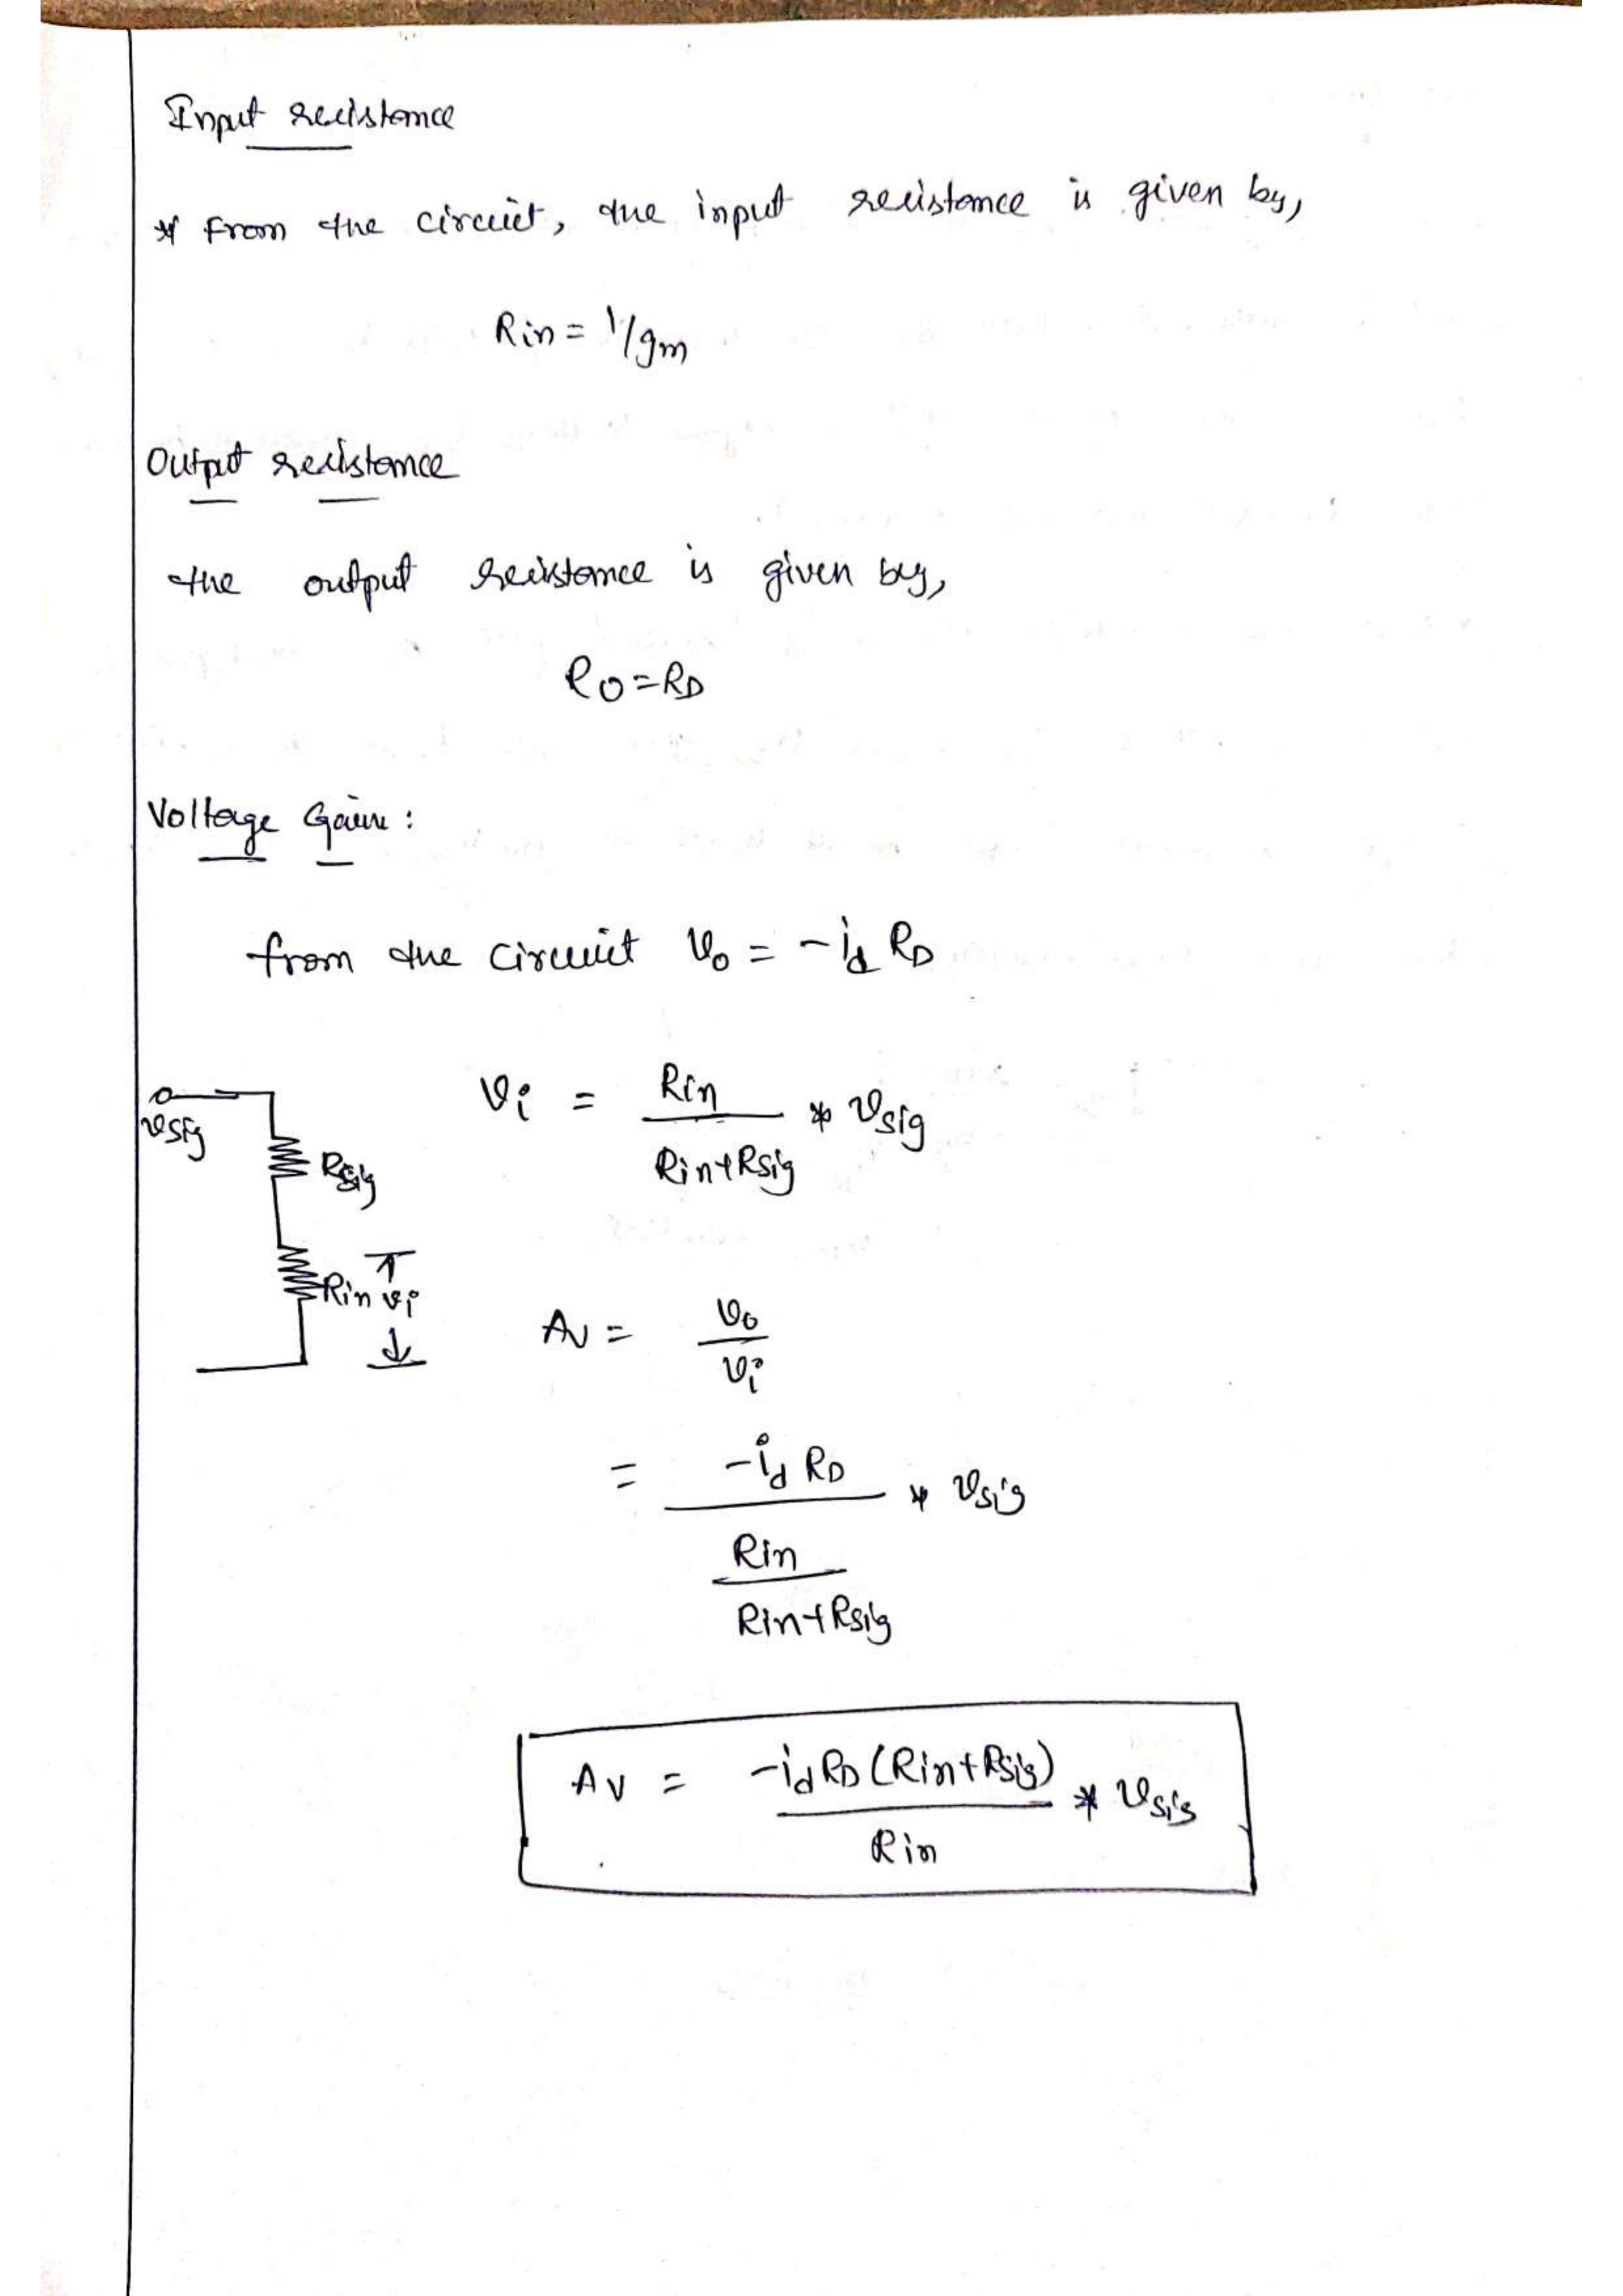 Input resistance
* From the circuit, the input resistance is given by,
Rin = 1/gm
Output resistance
the output resistance is given by,
Ro = RD
Voltage Gain :
from the circuit vo = -id RD
vsig
Rsig
Rin vi
vi = Rin / Rin+Rsig * vsig
Av = vo / vi
= -id RD / Rin / Rin+Rsig * vsig
Av = -id RD (Rin+Rsig) / Rin * vsig